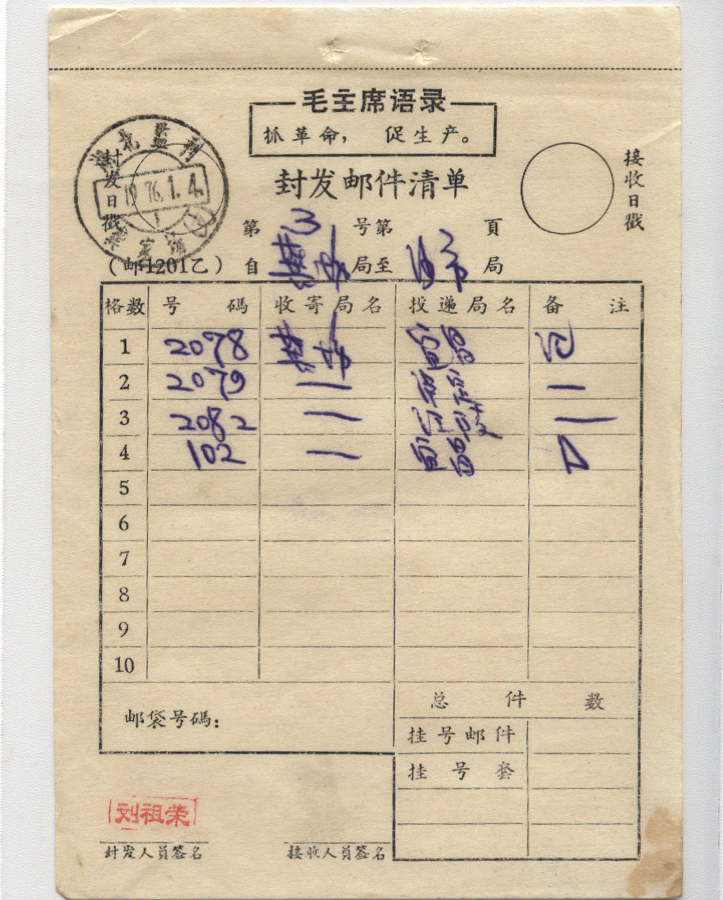 毛主席语录
抓革命， 促生产。
封发邮件清单
封发日戳
1976.1.4.
接收日戳
第 3 号第 頁
(邮1201乙) 自 局至 局
格数 号 碼 收寄局名 投递局名 备 注
1 2078
2 2079 一
3 2082 一
4 102 一
5
6
7
8
9
10
邮袋号碼：
总 件 数
挂号邮件
挂 号 套
刘祖荣
封发人员签名 接收人员签名